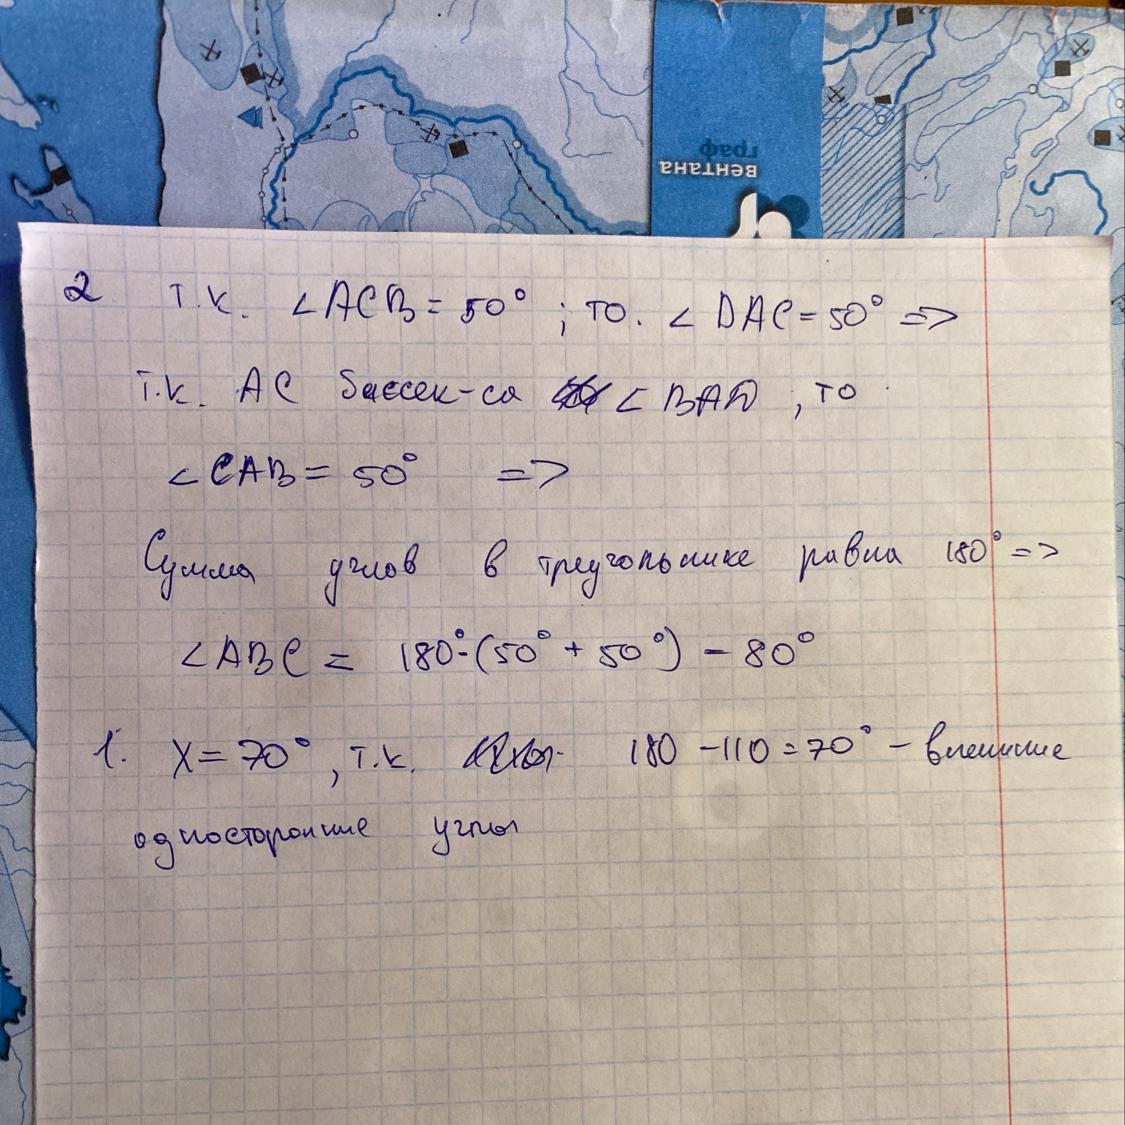 граф
вентана
2 т.к. ∠ACB = 50° ; то. ∠DAC = 50° =>
т.к. AC биссек-са ∠BAD , то
∠CAB = 50° =>
Сумма углов в треугольнике равна 180° =>
∠ABC = 180° - (50° + 50°) - 80°
1. X = 70° , т.к. 180 - 110 = 70° - внешние
односторонние углы